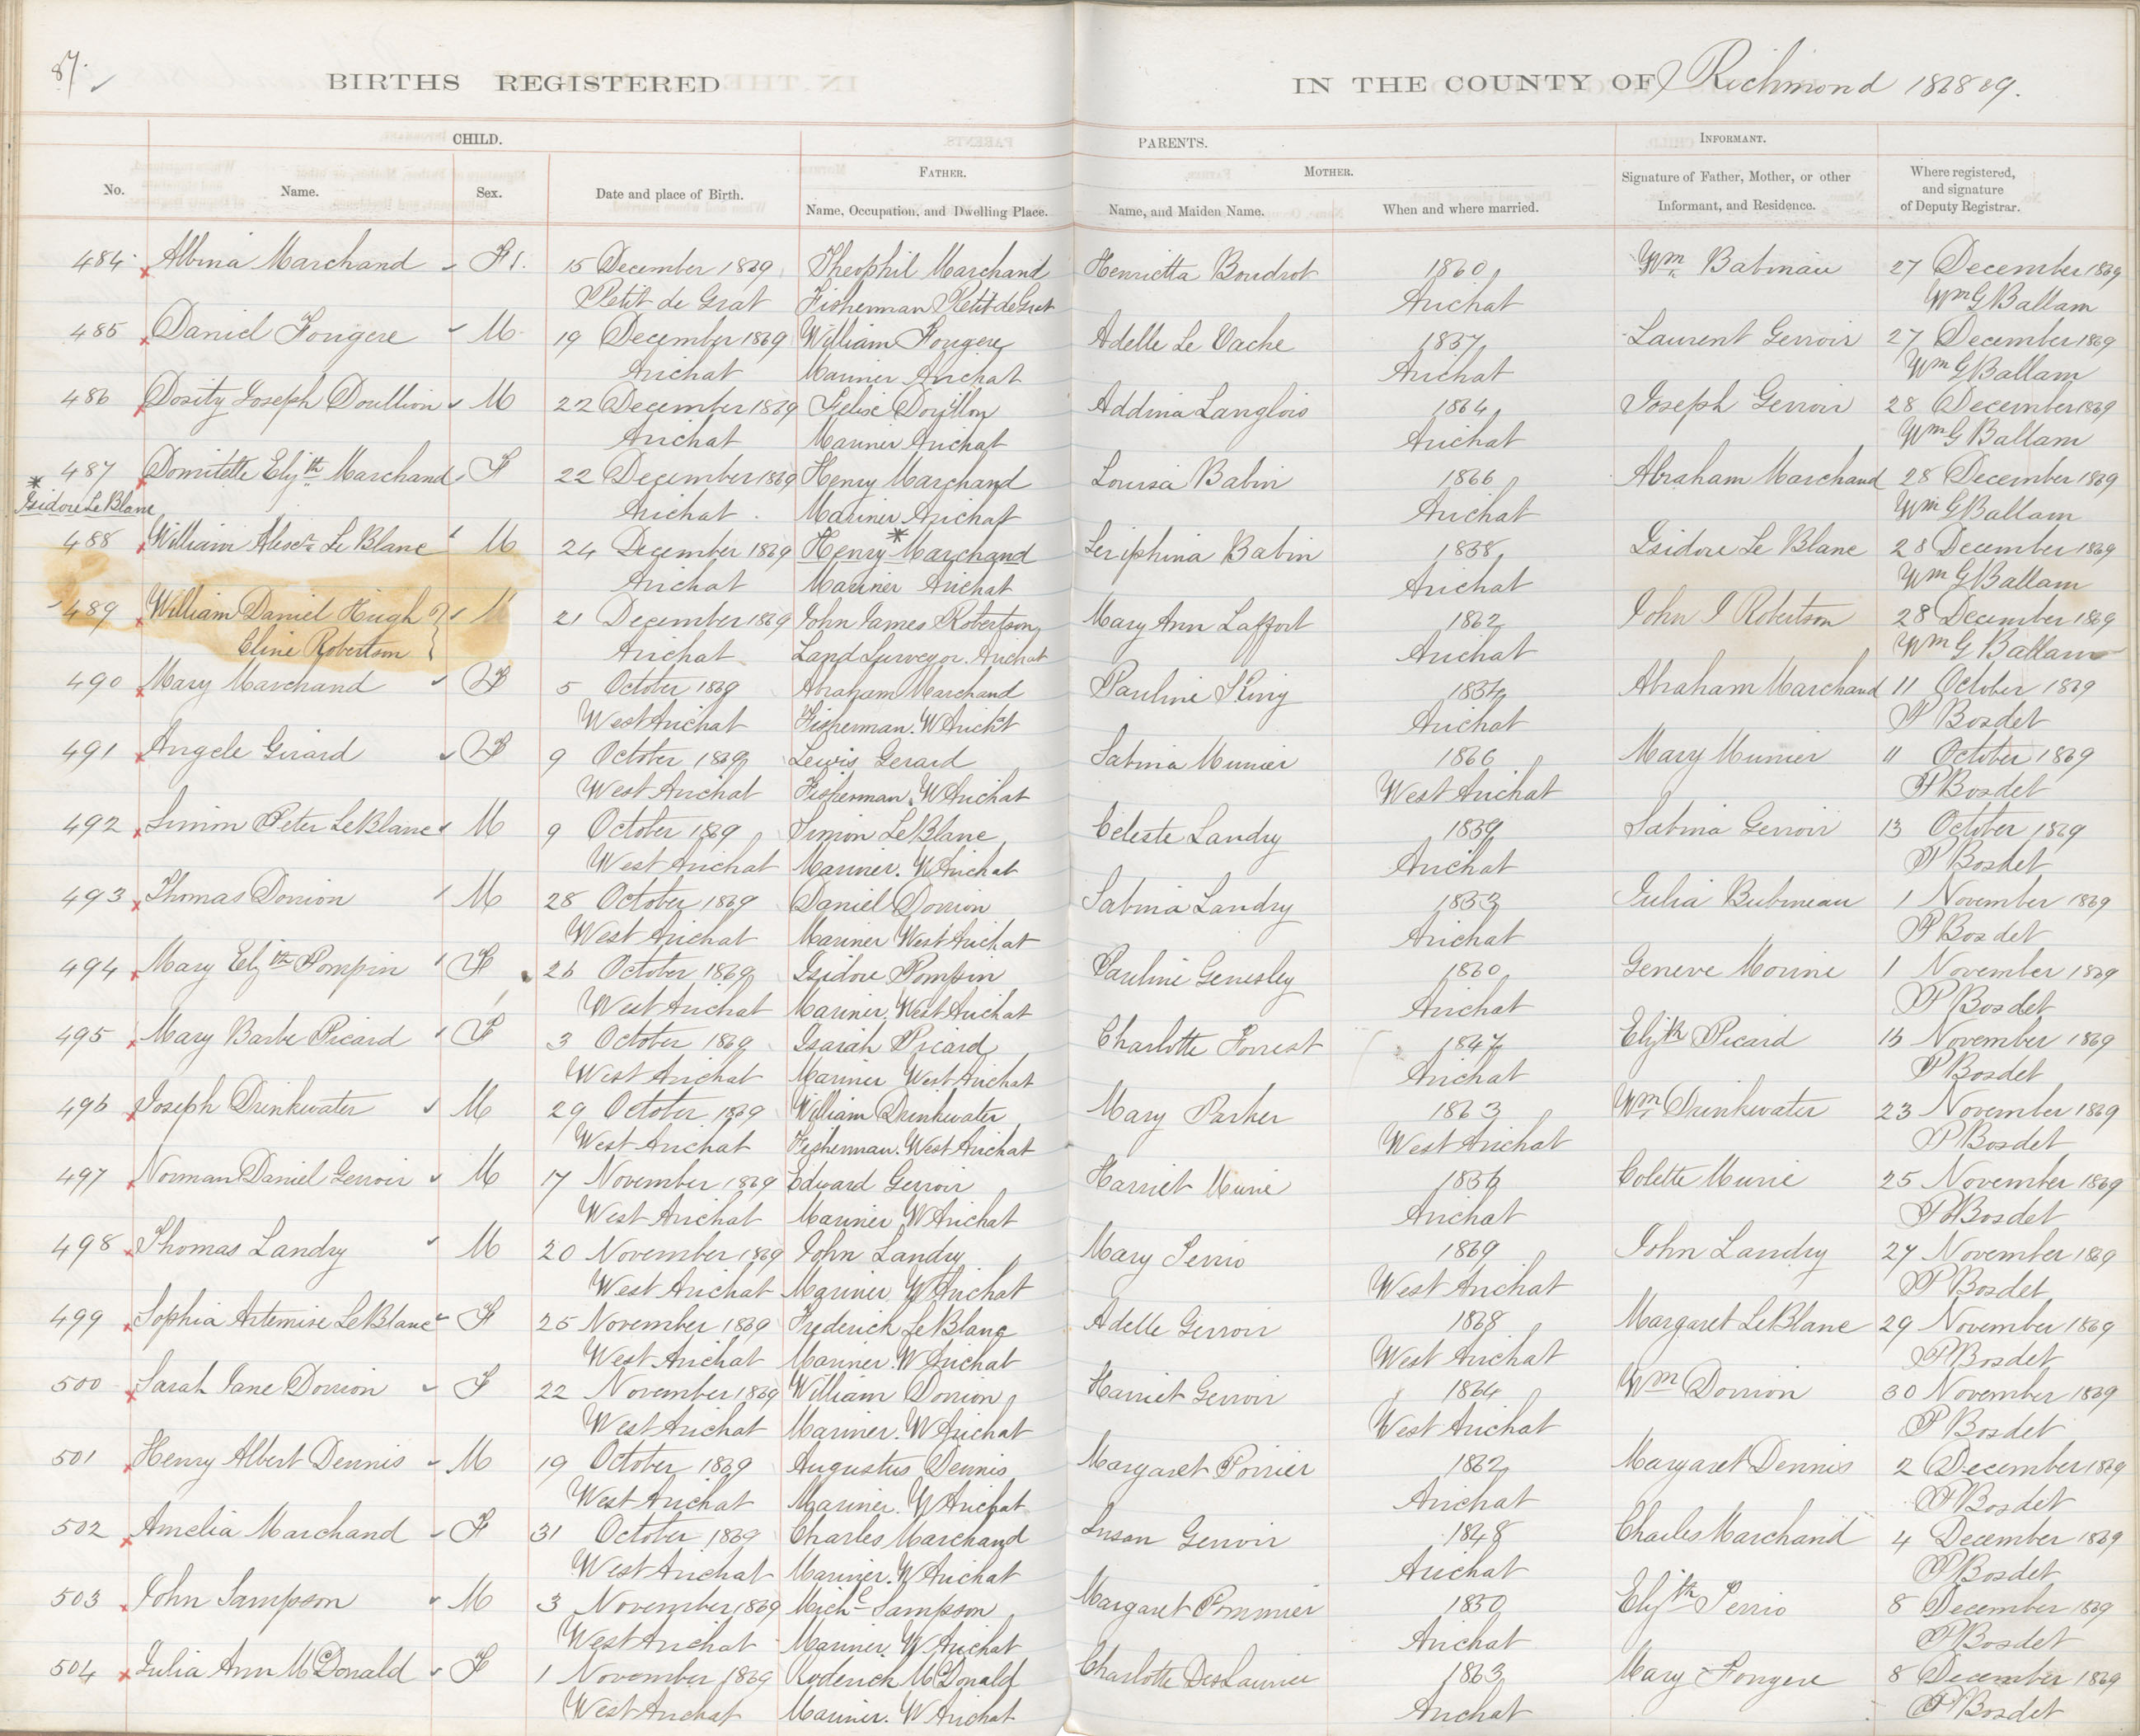 87.
BIRTHS REGISTERED IN THE COUNTY OF Richmond 1868 69.
CHILD. PARENTS. INFORMANT.
No. Name. Sex. Date and place of Birth. FATHER. Name, Occupation, and Dwelling Place. MOTHER. Name, and Maiden Name. When and where married. Signature of Father, Mother, or other Informant, and Residence. Where registered, and signature of Deputy Registrar.
484 Albina Marchand F 15 December 1869 Theophil Marchand Henrietta Boudrot 1860 Wm Babinau 27 December 1869
Petit de Grat Fisherman Petit de Grat Arichat Wm G Ballam
485 Daniel Fougere M 19 December 1869 William Fougere Adelle Le Vache 1857 Laurent Gerroir 27 December 1869
Arichat Mariner Arichat Arichat Wm G Ballam
486 Dosity Joseph Doullion M 22 December 1869 Felise Doyllon Addina Langlois 1864 Joseph Gerroir 28 December 1869
Arichat Mariner Arichat Arichat Wm G Ballam
487 Domitette Elizth Marchand F 22 December 1869 Henry Marchand Louisa Babin 1866 Abraham Marchand 28 December 1869
* Isidore Le Blanc Arichat Mariner Arichat Arichat Wm G Ballam
488 William Alexr Le Blanc M 24 December 1869 Henry * Marchand Seriphina Babin 1858 Isidore Le Blanc 28 December 1869
Arichat Mariner Arichat Arichat Wm G Ballam
489 William Daniel Hugh M 21 December 1869 John James Robertson Mary Ann Laffort 1862 John J Robertson 28 December 1869
Eline Robertson Arichat Land Surveyor. Arichat Arichat Wm G Ballam
490 Mary Marchand F 5 October 1869 Abraham Marchand Pauline King 1854 Abraham Marchand 11 October 1869
West Arichat Fisherman. W Aricht Arichat P Bosdet
491 Angele Girard F 9 October 1869 Lewis Gerard Sabina Munier 1866 Mary Munier 11 October 1869
West Arichat Fisherman. W Arichat West Arichat P Bosdet
492 Simon Peter LeBlanc M 9 October 1869 Simon LeBlanc Celeste Landry 1859 Sabina Gerroir 13 October 1869
West Arichat Mariner. W Arichat Arichat P Bosdet
493 Thomas Dorrion M 28 October 1869 Daniel Dorrion Sabina Landry 1853 Julia Bubineau 1 November 1869
West Arichat Mariner West Arichat Arichat P Bosdet
494 Mary Elizth Pompin F 26 October 1869 Isidore Pompin Pauline Genesley 1860 Geneve Morine 1 November 1869
West Arichat Mariner. West Arichat Arichat P Bosdet
495 Mary Barbe Picard F 3 October 1869 Isaiah Picard Charlotte Forrest 1847 Elizth Picard 16 November 1869
West Arichat Mariner West Arichat Arichat P Bosdet
496 Joseph Drinkwater M 29 October 1869 William Drinkwater Mary Parker 1863 Wm Drinkwater 23 November 1869
West Arichat Fisherman. West Arichat West Arichat P Bosdet
497 Norman Daniel Gerroir M 17 November 1869 Edward Gerroir Harriet Murie 1856 Colette Murie 25 November 1869
West Arichat Mariner W Arichat Arichat P Bosdet
498 Thomas Landry M 20 November 1869 John Landry Mary Perrio 1869 John Landry 27 November 1869
West Arichat Mariner W Arichat West Arichat P Bosdet
499 Sophia Artemise LeBlanc F 25 November 1869 Frederick LeBlanc Adelle Gerroir 1868 Margaret LeBlanc 29 November 1869
West Arichat Mariner. W Arichat West Arichat P Bosdet
500 Sarah Jane Dorrion F 22 November 1869 William Dorrion Harriet Gerroir 1864 Wm Dorrion 30 November 1869
West Arichat Mariner. W Arichat West Arichat P Bosdet
501 Henry Albert Dennis M 19 October 1869 Augustus Dennis Margaret Poirier 1862 Margaret Dennis 2 December 1869
West Arichat Mariner. W Arichat Arichat P Bosdet
502 Amelia Marchand F 31 October 1869 Charles Marchand Susan Gerroir 1848 Charles Marchand 4 December 1869
West Arichat Mariner. W Arichat Arichat P Bosdet
503 John Sampson M 3 November 1869 Michl Sampson Margaret Pommier 1850 Elizth Perrio 8 December 1869
West Arichat Mariner. W Arichat Arichat P Bosdet
504 Julia Ann McDonald F 1 November 1869 Roderick McDonald Charlotte DesLaurier 1863 Mary Fougere 8 December 1869
West Arichat Mariner. W Arichat Arichat P Bosdet